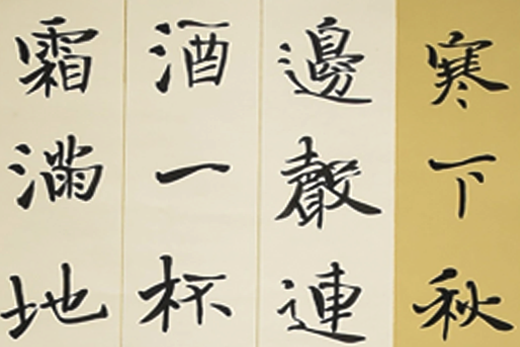 寒下秋
邊聲連
酒一杯
霜滿地